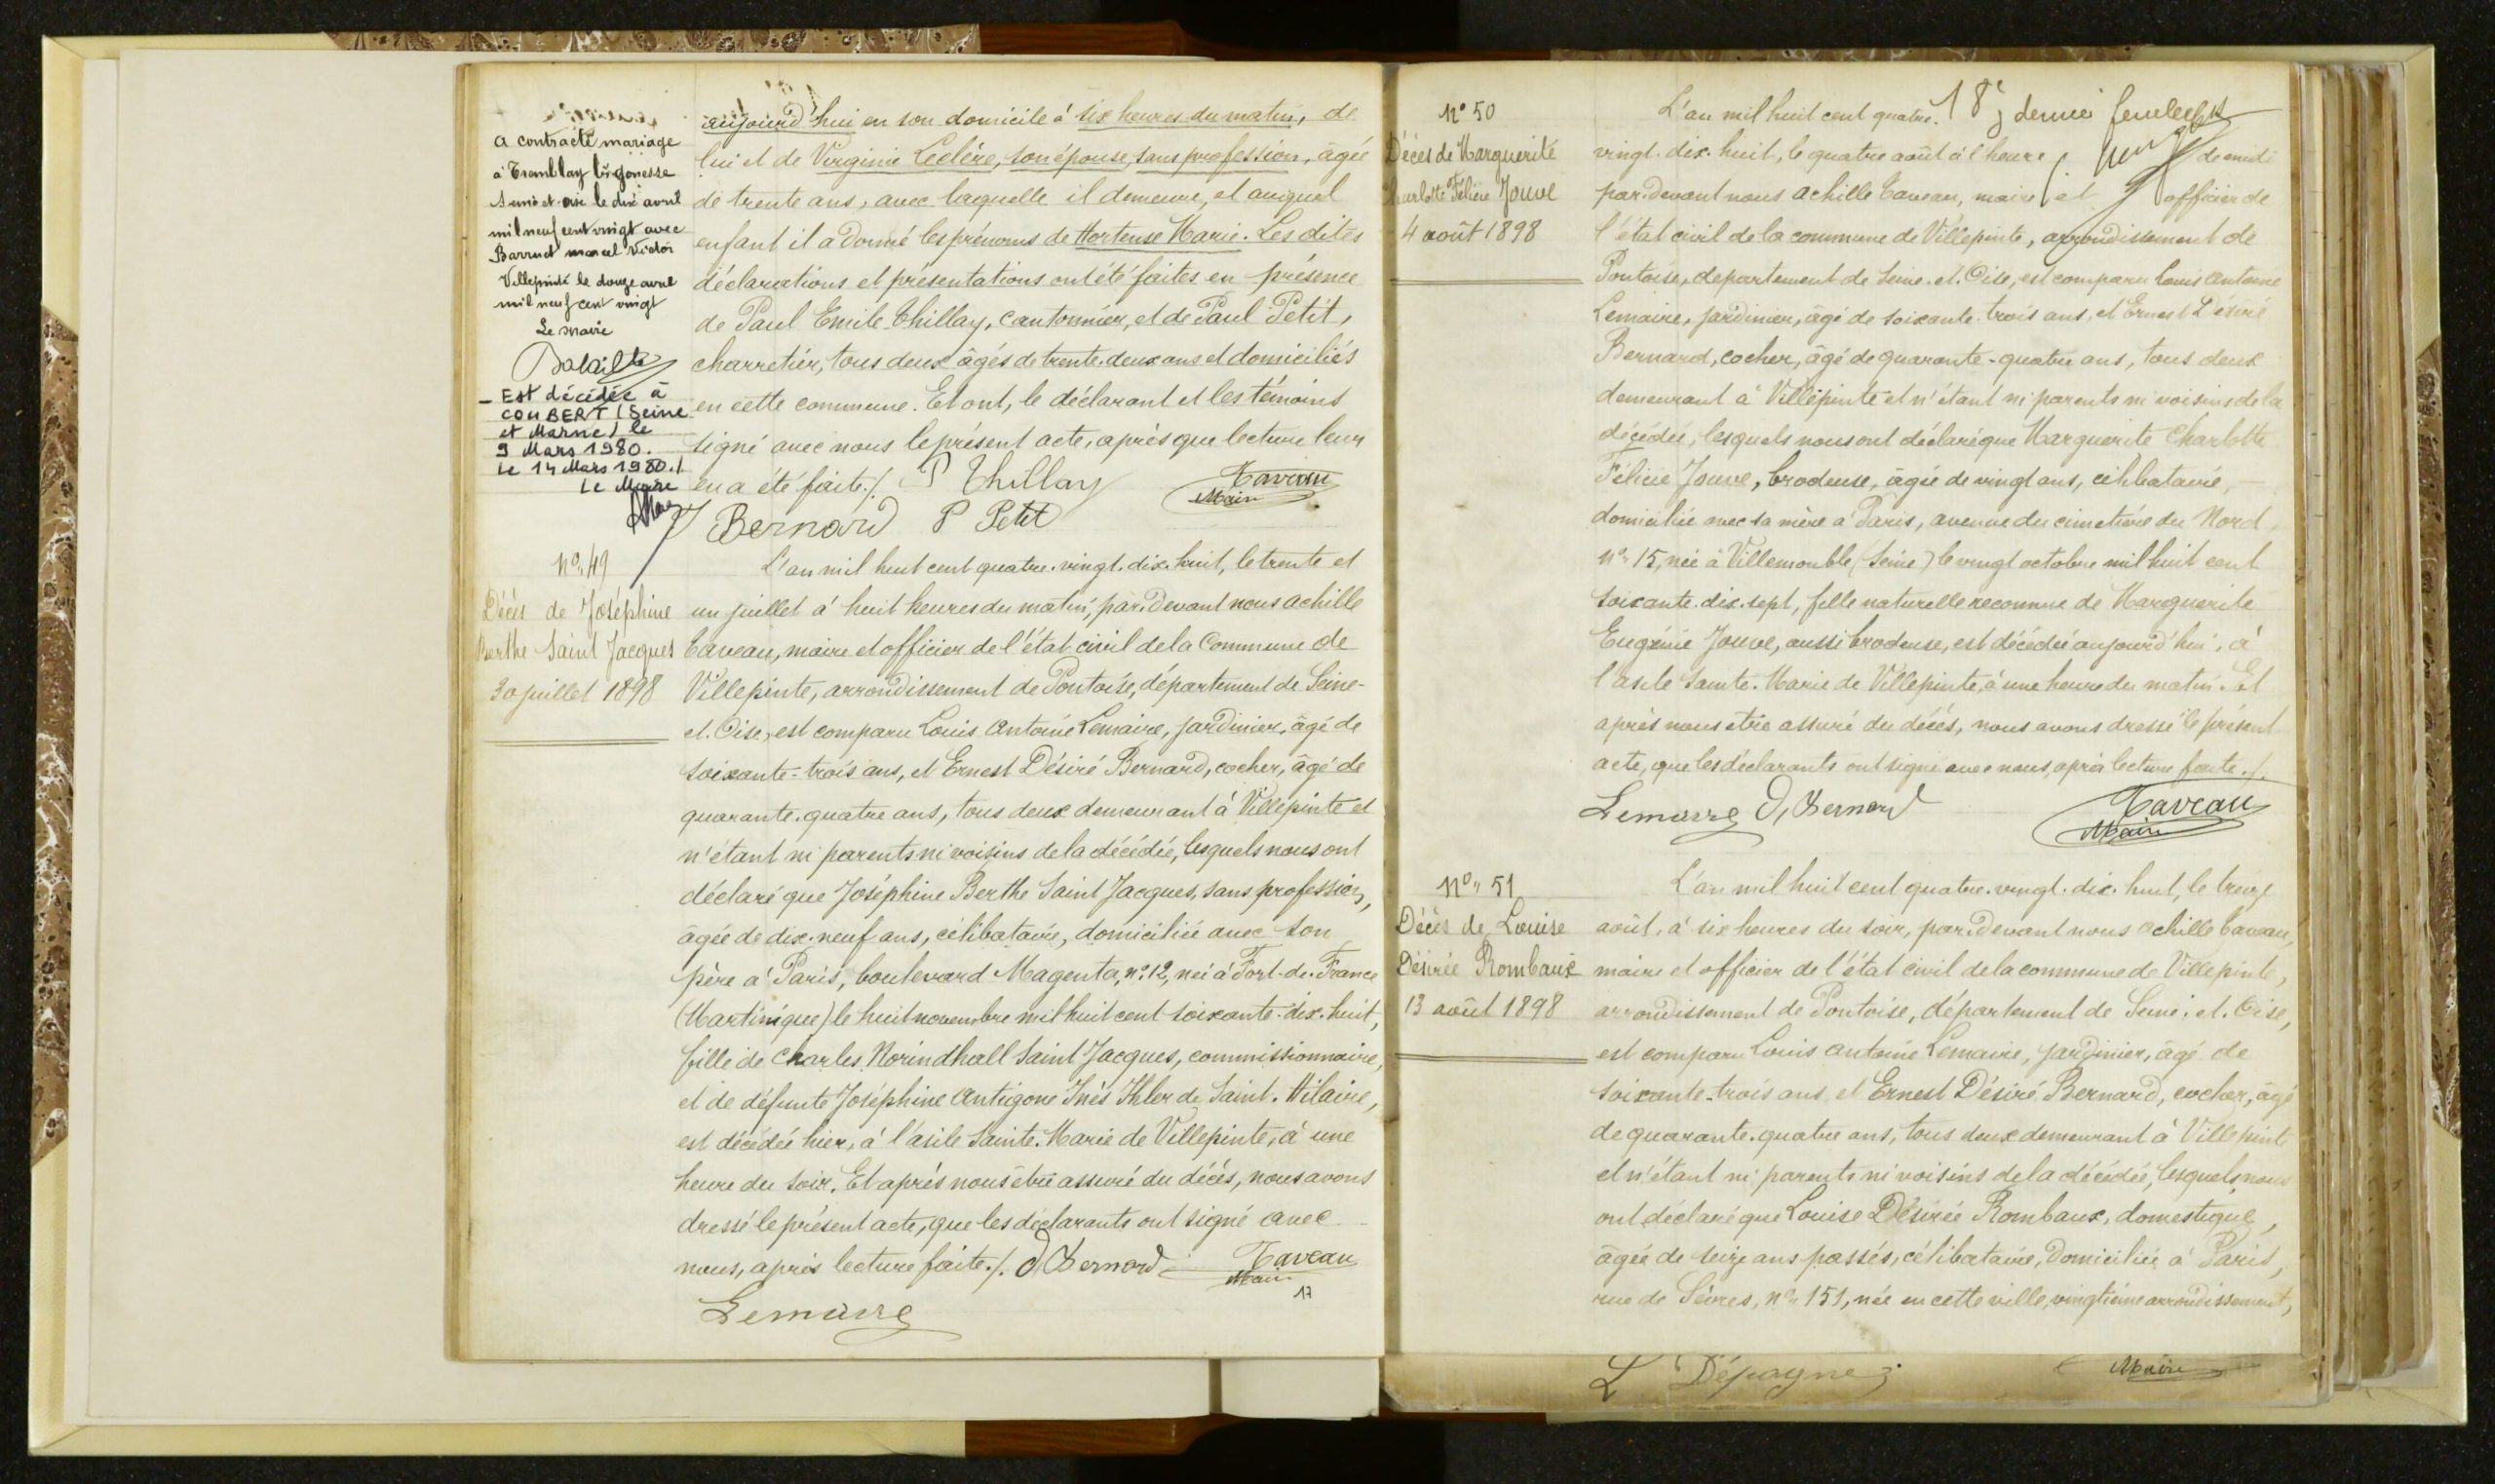 a contracté mariage
à Tremblay lès gonesse
Seine et oise le dix avril
mil neuf cent vingt avec
Barruet marcel Victor
Villepinte le douze avril
mil neuf cent vingt
Le maire
- Est décédée à
COUBERT (Seine
et Marne) le
9 Mars 1980.
Le 14 Mars 1980./
Le Maire
aujourd'hui en son domicile à six heures du matin, de
lui et de Virginie Leclère, son épouse, sans profession, âgée
de trente ans, avec laquelle il demeure, et auquel
enfant il a donné les prénoms de Hortense Marie. Les dites
déclarations et présentations ont été faites en présence
de Paul Emile Thillay, cantonnier, et de Paul Petit,
charretier, tous deux âgés de trente-deux ans et domiciliés
en cette commune. Et ont, le déclarant et les témoins
signé avec nous le présent acte, après que lecture leur
en a été faite./. P Thillay Taveau
Maire
Bernard P Petit
No. 49
Décès de Joséphine
Berthe Saint Jacques
30 juillet 1898
L'an mil huit cent quatre-vingt-dix-huit, le trente et
un juillet à huit heures du matin, par devant nous Achille
Taveau, maire et officier de l'état civil de la Commune de
Villepinte, arrondissement de Pontoise, département de Seine-
et-Oise, est comparu Louis Antoine Lemaire, jardinier, âgé de
soixante-trois ans, et Ernest Désiré Bernard, cocher, âgé de
quarante-quatre ans, tous deux demeurant à Villepinte et
n'étant ni parents ni voisins de la décédée, lesquels nous ont
déclaré que Joséphine Berthe Saint Jacques, sans profession,
âgée de dix-neuf ans, célibataire, domiciliée avec son
père à Paris, boulevard Magenta, no. 12, née à Fort-de-France
(Martinique) le huit novembre mil huit cent soixante-dix-huit,
fille de Charles Norindhall Saint Jacques, commissionnaire,
et de défunte Joséphine Antigone Inès Ihler de Saint-Hilaire,
est décédée hier, à l'asile Sainte-Marie de Villepinte, à une
heure du soir. Et après nous être assuré du décès, nous avons
dressé le présent acte, que les déclarants ont signé avec
nous, après lecture faite./. D Bernard Taveau
Maire
17
Lemaire
No 50
Décès de Marguerite
Charlotte Félicie Jouve
4 août 1898
L'an mil huit cent quatre- 18e dernier feuillet
vingt-dix-huit, le quatre août à l'heure de midi
par devant nous Achille Taveau, maire et officier de
l'état civil de la commune de Villepinte, arrondissement de
Pontoise, département de Seine-et-Oise, est comparu Louis Antoine
Lemaire, jardinier, âgé de soixante-trois ans, et Ernest Désiré
Bernard, cocher, âgé de quarante-quatre ans, tous deux
demeurant à Villepinte et n'étant ni parents ni voisins de la
décédée, lesquels nous ont déclaré que Marguerite Charlotte
Félicie Jouve, brodeuse, âgée de vingt ans, célibataire,
domiciliée avec sa mère à Paris, avenue du cimetière du Nord,
no. 15, née à Villemomble (Seine) le vingt octobre mil huit cent
soixante-dix-sept, fille naturelle reconnue de Marguerite
Eugénie Jouve, aussi brodeuse, est décédée aujourd'hui, à
l'asile Sainte-Marie de Villepinte, à une heure du matin. Et
après nous être assuré du décès, nous avons dressé le présent
acte, que les déclarants ont signé avec nous, après lecture faite./.
Lemaire D, Bernard Taveau
Maire
No. 51
Décès de Louise
Désirée Rombaux
13 août 1898
L'an mil huit cent quatre-vingt-dix-huit, le treize
août, à six heures du soir, par devant nous Achille Taveau,
maire et officier de l'état civil de la commune de Villepinte,
arrondissement de Pontoise, département de Seine-et-Oise,
est comparu Louis Antoine Lemaire, jardinier, âgé de
soixante-trois ans et Ernest Désiré Bernard, cocher, âgé
de quarante-quatre ans, tous deux demeurant à Villepinte
et n'étant ni parents ni voisins de la décédée, lesquels nous
ont déclaré que Louise Désirée Rombaux, domestique,
âgée de seize ans passés, célibataire, domiciliée à Paris,
rue de Sèvres, no. 151, née en cette ville, vingtième arrondissement,
L Dépagne Maire